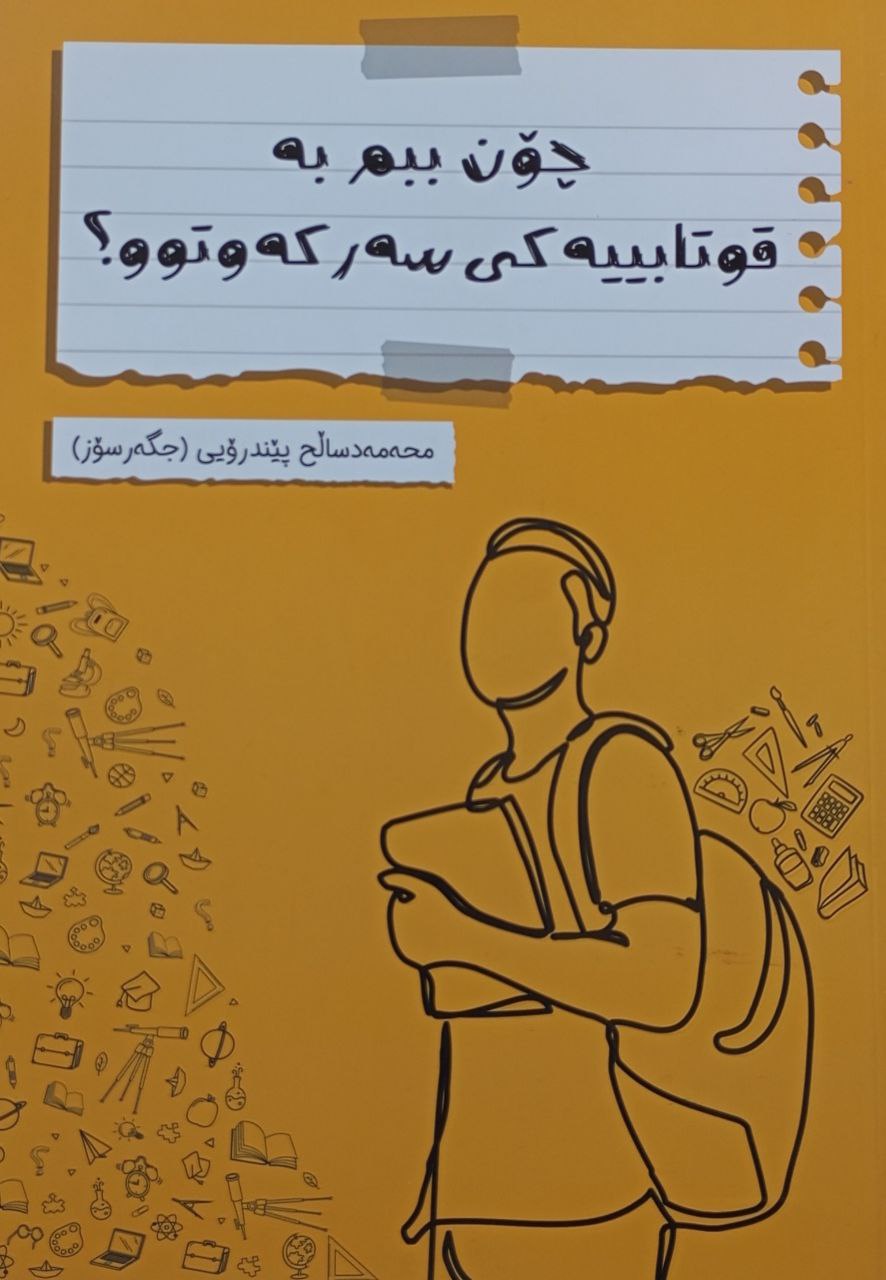 چۆن ببم بە
قوتابییەکی سەرکەوتوو؟
محەمەدساڵح پێندرۆیی (جگەرسۆز)